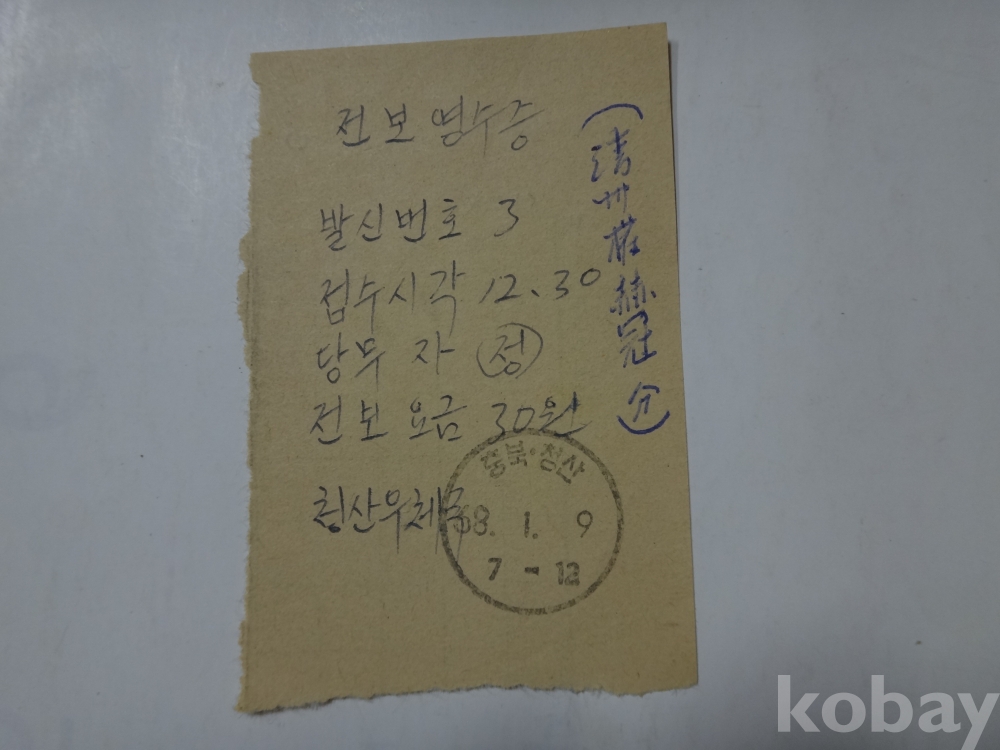 전보영수증
발신번호 3
접수시각 12.30
당무자 (정)
전보요금 30원
청산우체국
충북·청산
68. 1. 9
7-12
(淸州 權赫冠 分)
kobay